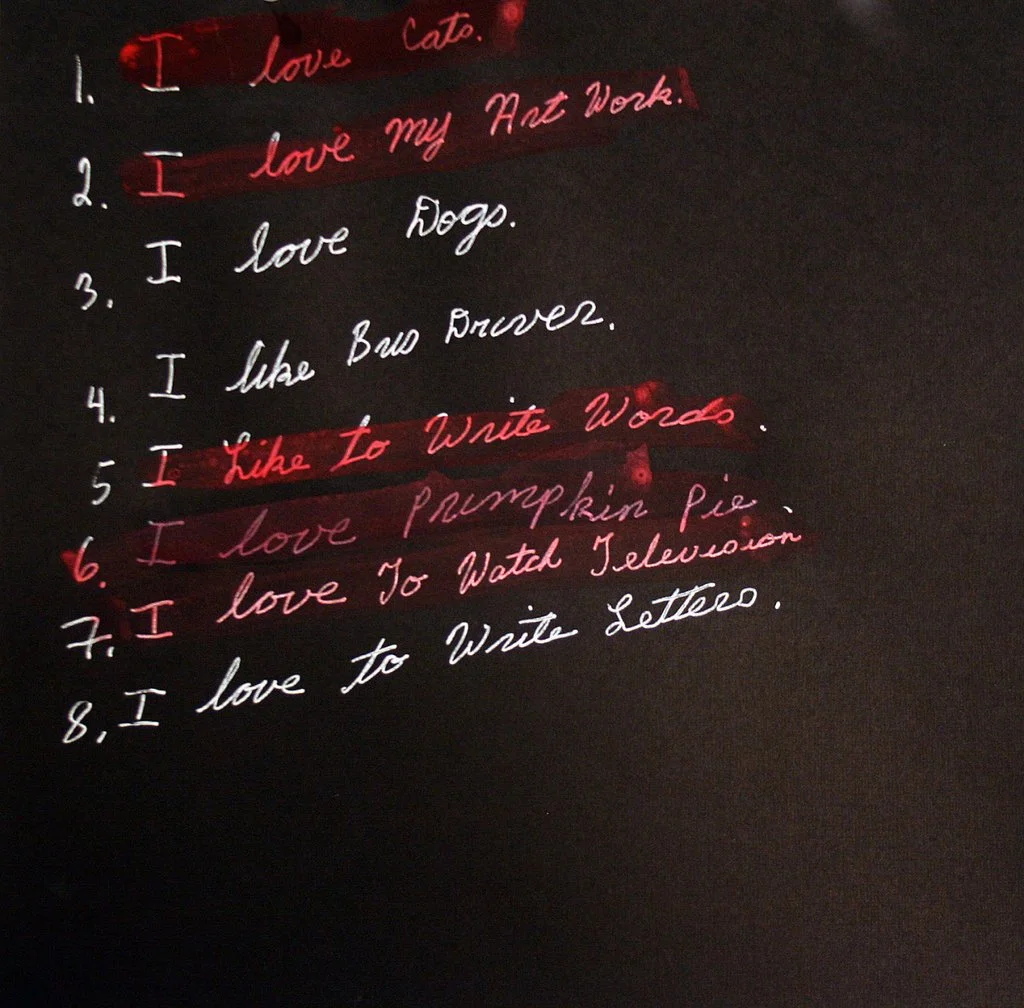 1. I love Cats.
2. I love My Art Work.
3. I love Dogs.
4. I like Bus Driver.
5 I Like to Write Words.
6. I love Prumpkin Pie.
7. I love To Watch Television
8. I love to Write Letters.